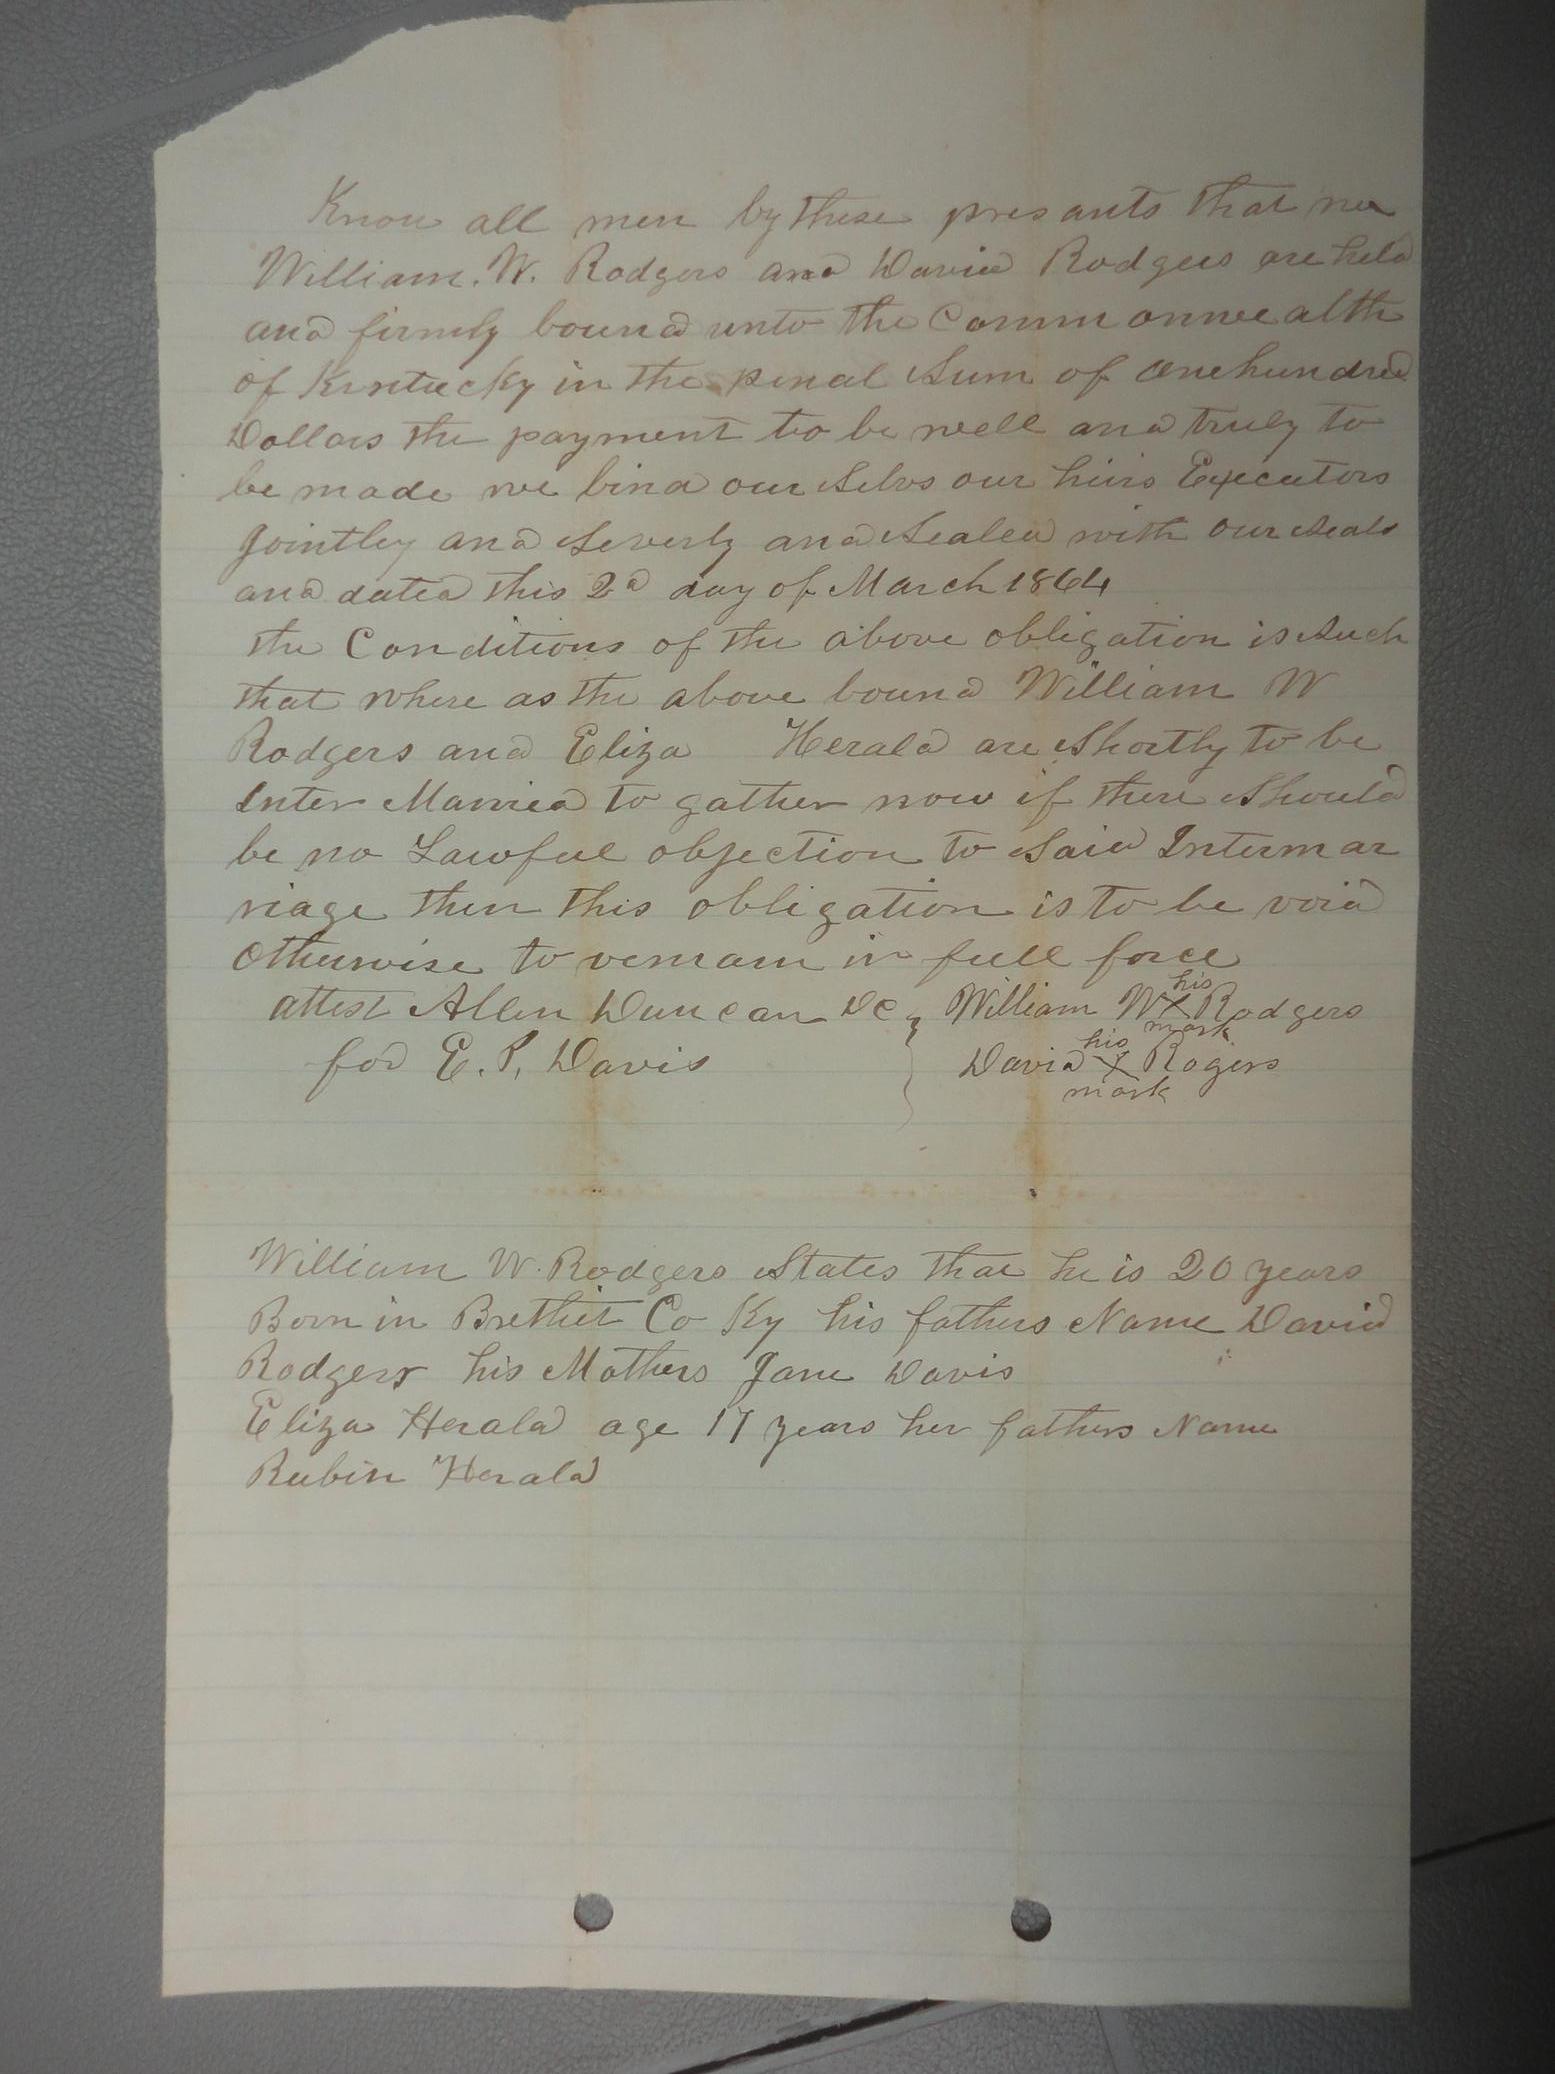 Know all men by these presants that we
William. W. Rodgers and David Rodgers are held
and firmly bound unto the Commonwealth
of Kentucky in the penal sum of one hundred
Dollars the payment to be well and truly to
be made we bind our selvs our heirs Executors
Jointley and Severly and Sealed with our seals
and dated this 2d day of March 1864
the Conditions of the above obligation is such
that where as the above bound William W
Rodgers and Eliza Herald are shortly to be
Inter Married to gather now if there should
be no Lawful objection to said Intermar
riage then this obligation is to be void
otherwise to remain in full force
attest Allen Duncan DC } William W his X mark Rodgers
for E. P. Davis } David his X mark Rogers
William W. Rodgers States that he is 20 years
Born in Brethit Co Ky his fathers Name David
Rodgers his Mothers Jane Davis
Eliza Herald age 17 years her fathers Name
Rubin Herald